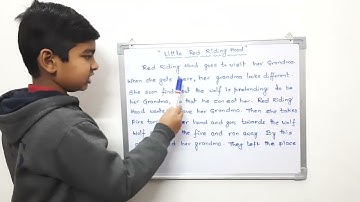 "Little Red Riding Hood"
Red Riding Hood goes to visit her Grandma.
When she gets there, her grandma looks different.
She soon finds out the wolf is pretending to be
her Grandma, so that he can eat her. Red Riding
Hood wants to save her Grandma. Then she takes
Fire torch in her hand and goes towards the wolf
Wolf the fire and ran away. By this
and her grandma. They left the place